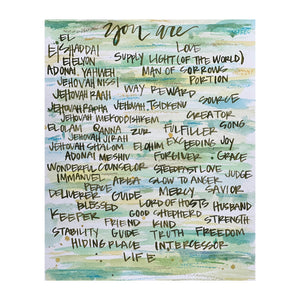 you are
EL
EL SHADDAI LOVE
EL ELYON SUPPLY LIGHT (OF THE WORLD)
ADONAI YAHWEH MAN OF SORROWS
JEHOVAH NISSI PORTION
JEHOVAH RAAH WAY REWARD
JEHOVAH RAPHA JEHOVAH TSIDKENU SOURCE
JEHOVAH MEKODDISHKEM CREATOR
EL OLAM QANNA ZUR FULFILLER SONG
JEHOVAH JIRAH
JEHOVAH SHALOM ELOHIM EXCEEDING JOY
ADONAI MESHIV FORGIVER GRACE
WONDERFUL COUNSELOR STEADFAST LOVE
IMMANUEL ABBA SLOW TO ANGER JUDGE
PEACE MERCY SAVIOR
DELIVERER GUIDE
BLESSED LORD OF HOSTS HUSBAND
KEEPER GOOD SHEPHERD
FRIEND KIND STRENGTH
STABILITY GUIDE TRUTH FREEDOM
HIDING PLACE INTERCESSOR
LIFE